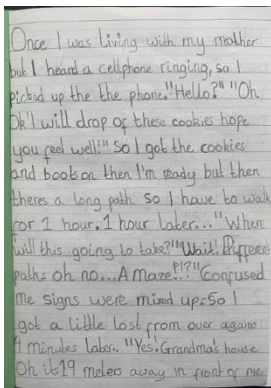 Once I was living with my mother
but I heard a cellphone ringing, so I
picked up the the phone."Hello?" "Oh
Ok I will drop of these cookies hope
you feel well!" So I got the cookies
and boots on then I'm ready but then
theres a long path so I have to walk
for 1 hour. 1 hour later... "When
will this going to take?" "Wait! Different
paths oh no... A maze?!?" Confused
me signs were mixed up. So I
got a little lost from over again
4 minutes later.. "Yes! Grandma's house
Oh it's 19 meters away in front of me.